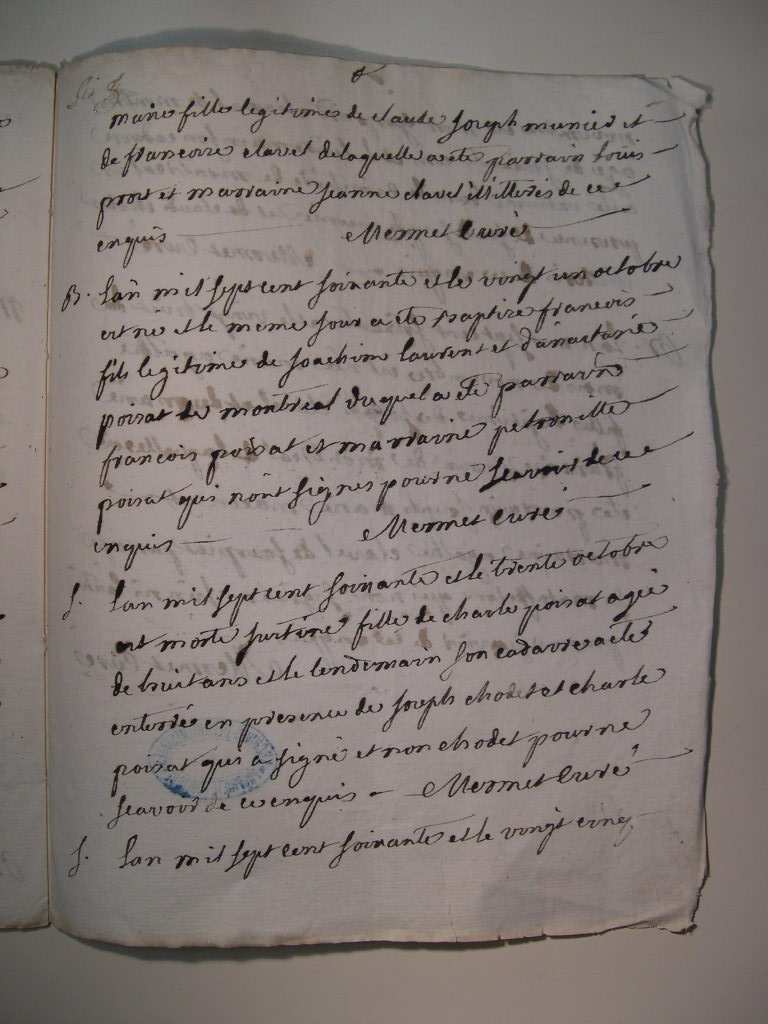 marie fille legitime de claude Joseph munier et
de francoise clavel delaquelle a eté parrain louis
prost et marraine jeanne clavel illitterés de ce
enquis Mermet curé
B. Lan mil sept cent soixante et le vingt un octobre
est né et le meme jour a eté baptize francois
fils legitime de joachim laurent et d'anastasie
poisat de montreal duquel a eté parrain
francois poisat et marraine petronille
poisat qui n'ont signes pour ne sçavoir de ce
enquis Mermet curé
S. Lan mil sept cent soixante et le trente octobre
est morte fille de charle poisat agée
de huit ans et le lendemain son cadavre a eté
enterrée en presence de joseph chodet et charle
poisat qui a signé et non chodet pour ne
sçavoir de ce enquis Mermet Curé
S. Lan mil sept cent soixante et le vingt cinq